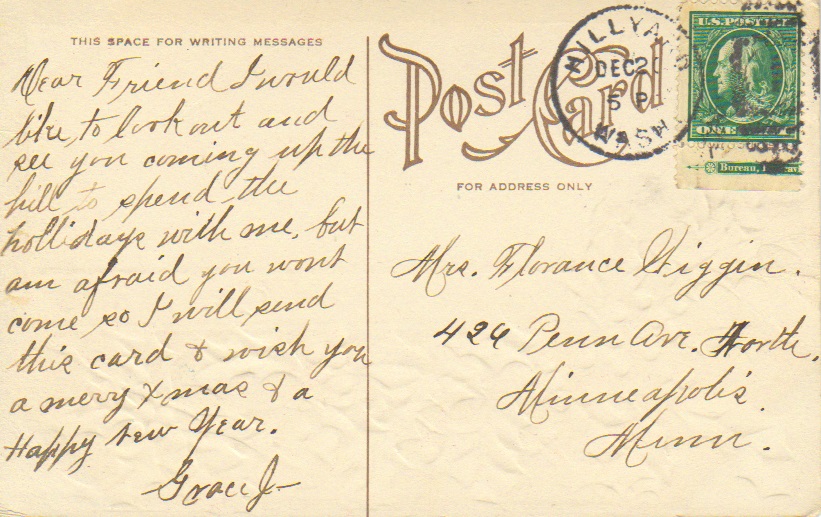 THIS SPACE FOR WRITING MESSAGES
Dear Friend I would
like to look out and
see you coming up the
hill to spend the
hollidays with me, but
am afraid you wont
come so I will send
this card & wish you
a merry Xmas & a
Happy New Year.
Grace J
Post Card
FOR ADDRESS ONLY
HILLYARD
DEC 2
5 P
WASH.
U.S. POSTAGE
ONE
Bureau,
Mrs. Florance Wiggin.
424 Penn Ave. North.
Minneapolis
Minn.